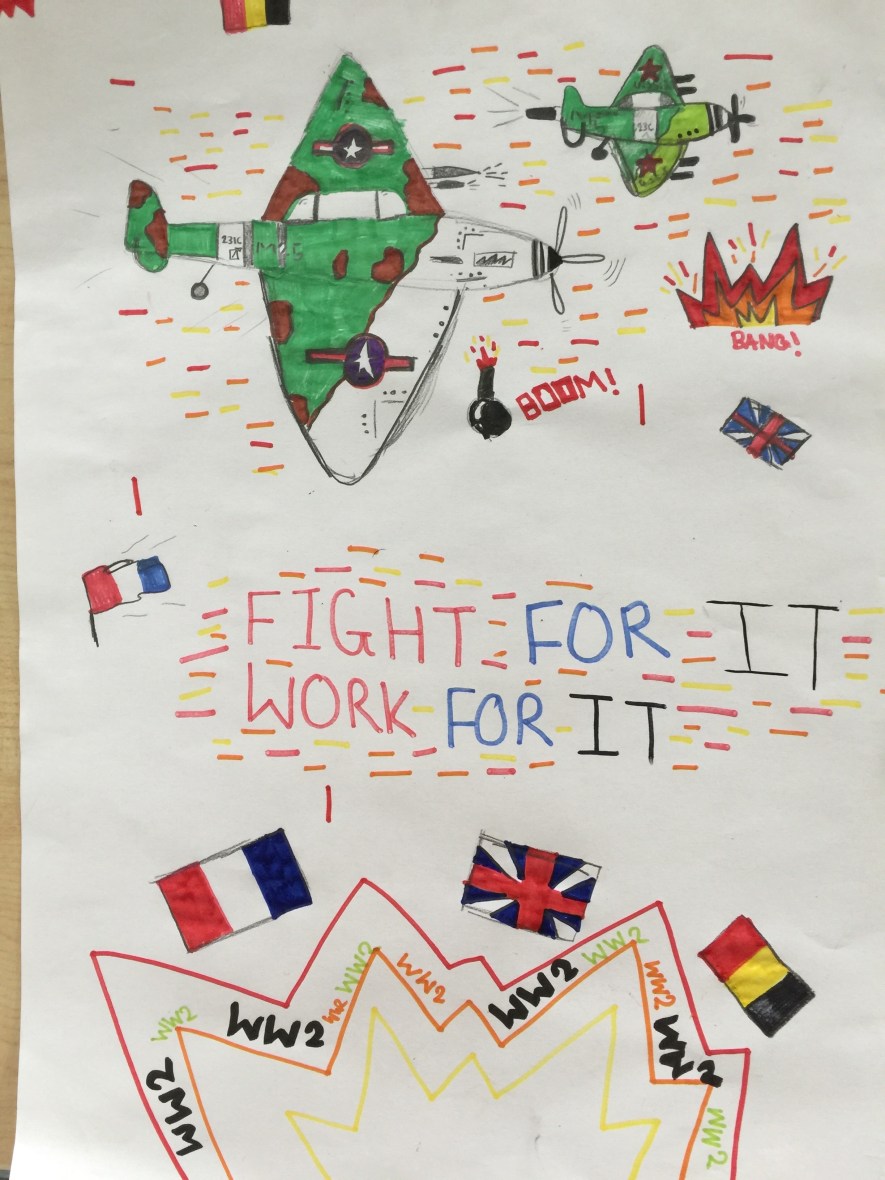 231C
BOOM!
BANG!
FIGHT FOR IT
WORK FOR IT
WW2
WW2
WW2
WW2
WW2
WW2
WW2
WW2
WW2
WW2